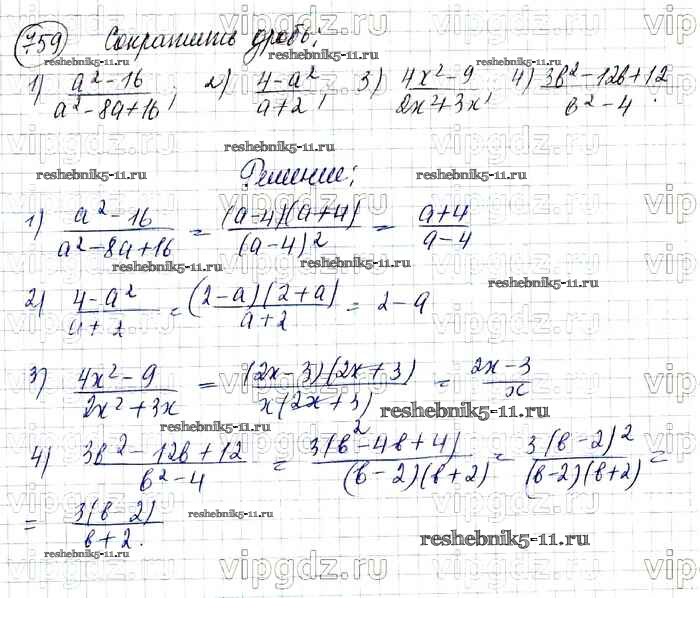 759 Сократить дробь:
1) (a² - 16)/(a² - 8a + 16); 2) (4 - a²)/(a + 2); 3) (4x² - 9)/(2x² + 3x); 4) (3b² - 12b + 12)/(b² - 4).
Решение:
1) (a² - 16)/(a² - 8a + 16) = ((a - 4)(a + 4))/(a - 4)² = (a + 4)/(a - 4)
2) (4 - a²)/(a + 2) = ((2 - a)(2 + a))/(a + 2) = 2 - a
3) (4x² - 9)/(2x² + 3x) = ((2x - 3)(2x + 3))/(x(2x + 3)) = (2x - 3)/x
4) (3b² - 12b + 12)/(b² - 4) = (3(b² - 4b + 4))/((b - 2)(b + 2)) = (3(b - 2)²)/((b - 2)(b + 2)) =
= (3(b - 2))/(b + 2).
vipgdz.ru
reshebnik5-11.ru